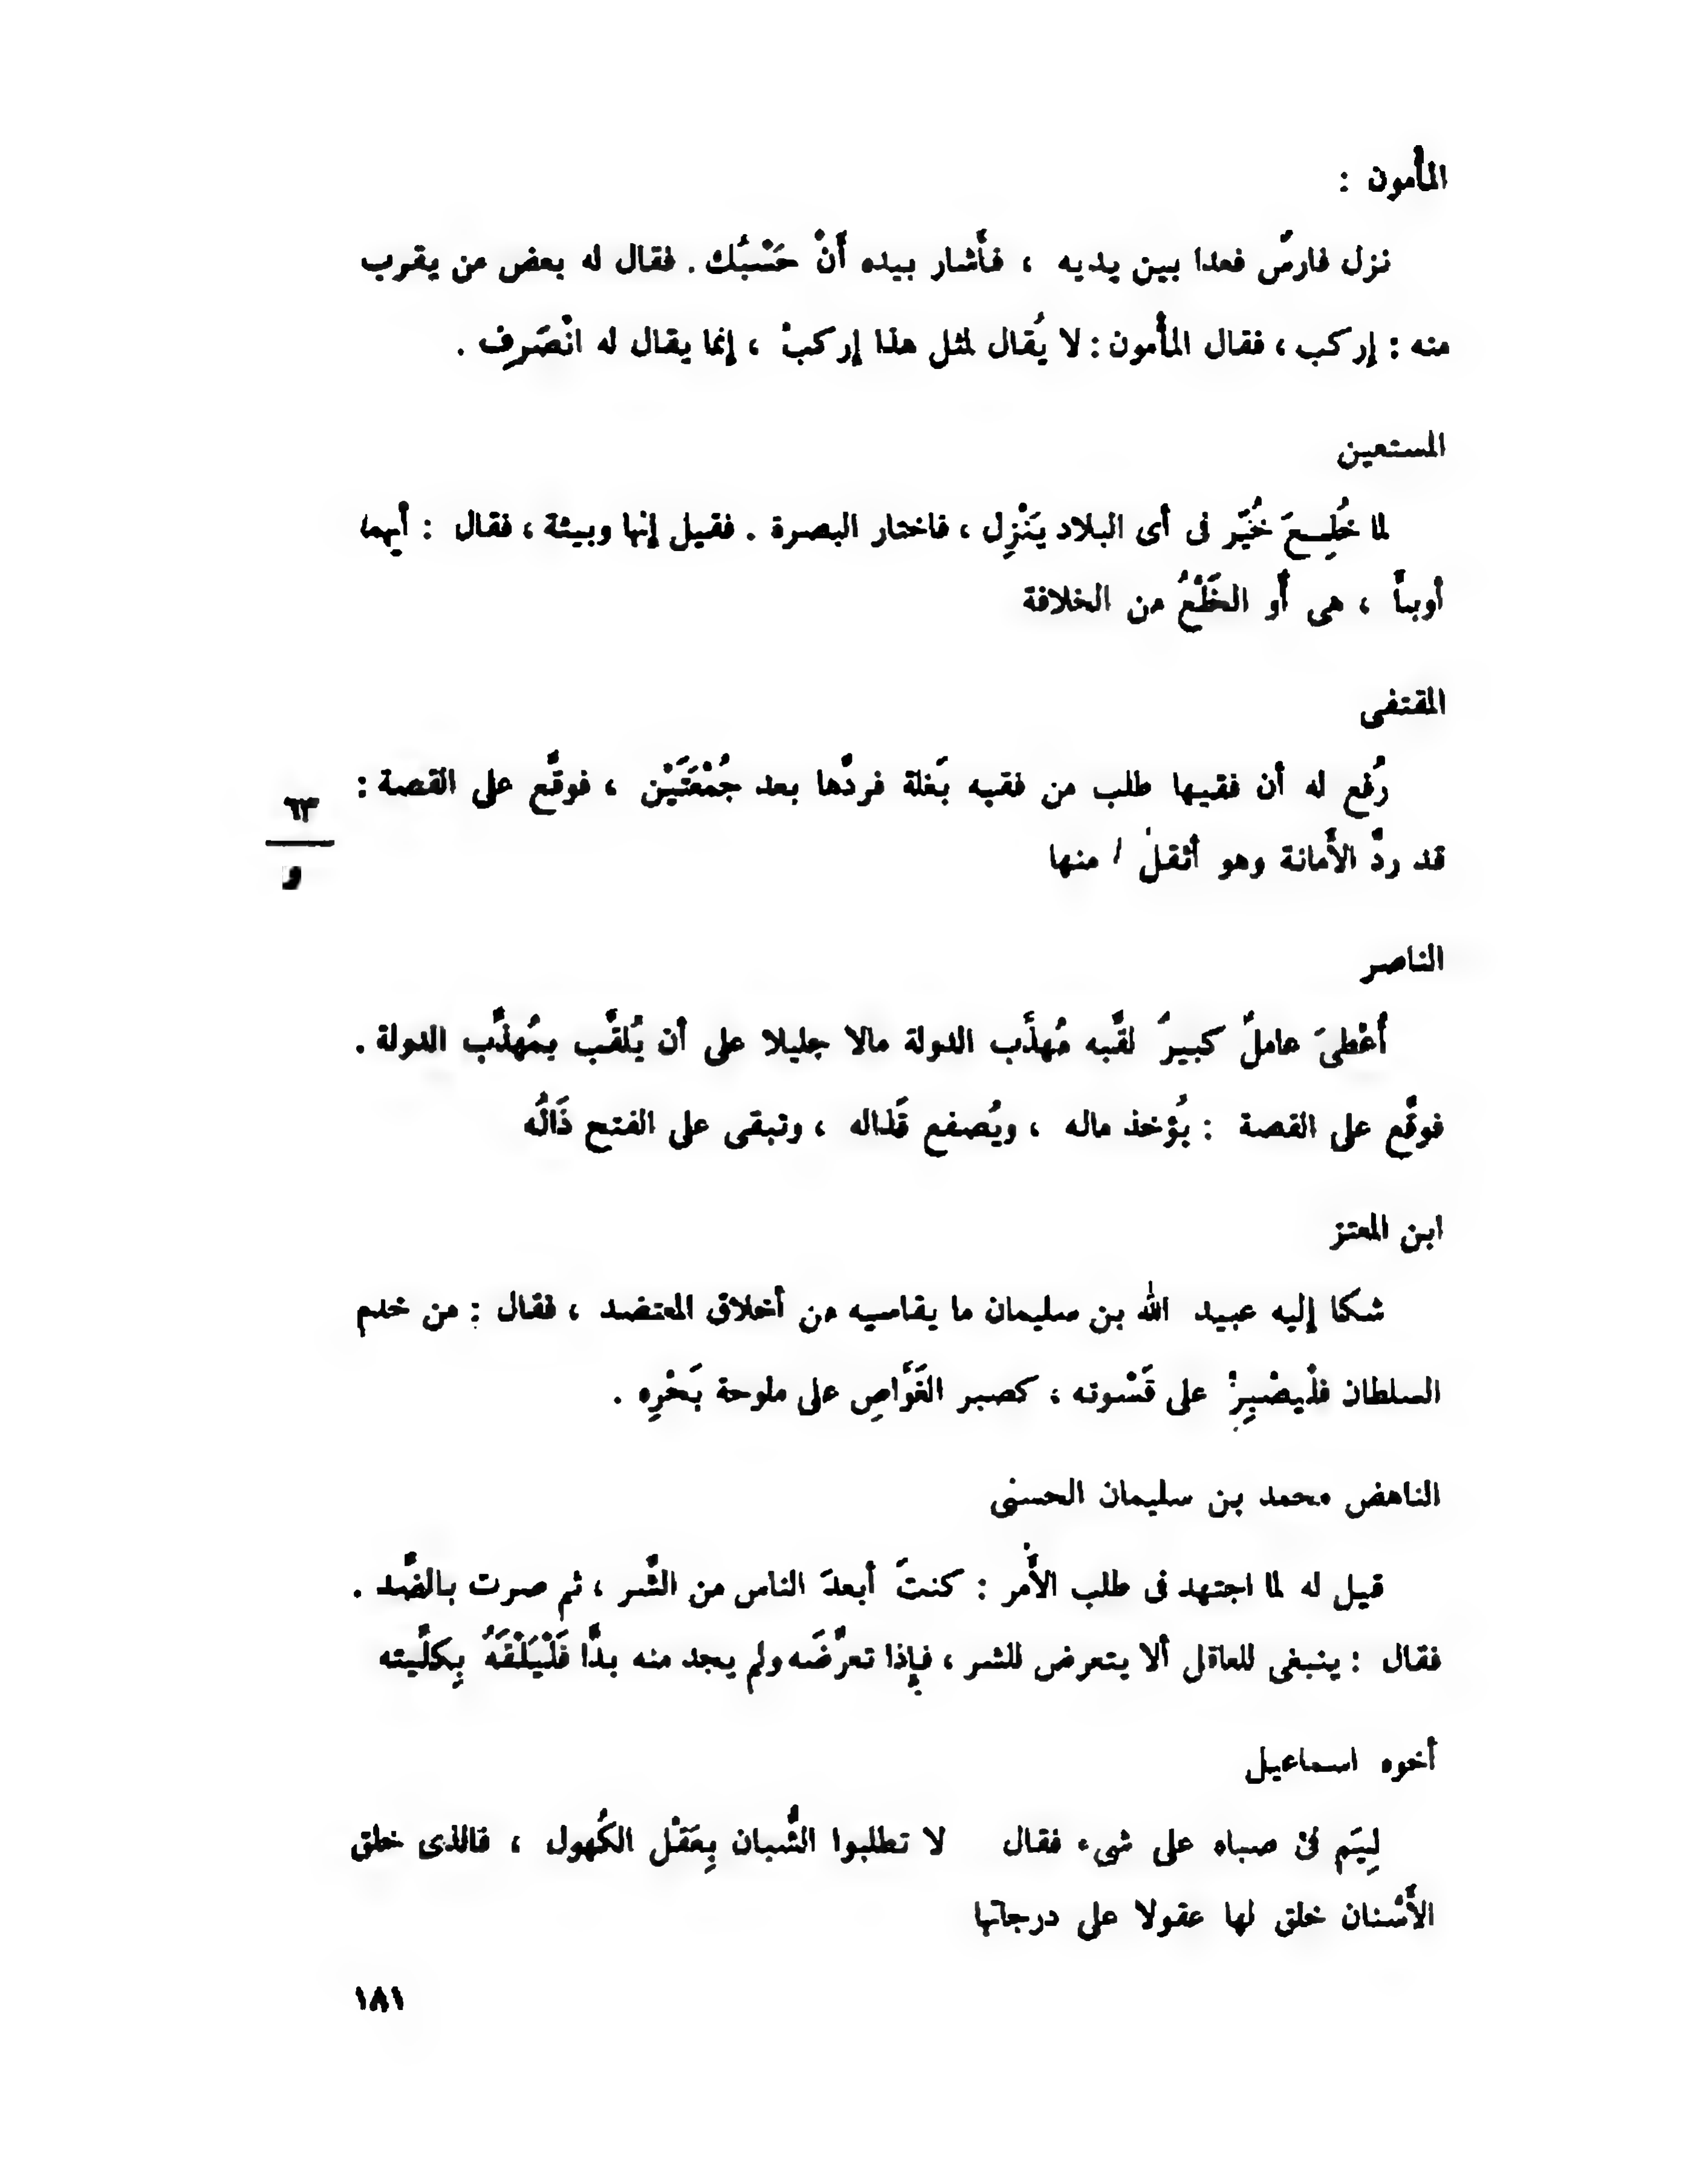 المأمون :
نزل فارسٌ فعدا بين يديه ، فأَشار بيده أَنْ حَسْبُك . فقال له بعض من يقرب
منه : إركب ، فقال المأْمون : لا يُقال لمثل هذا إركبْ ، إنما يقال له انْصَرِف .
المستعين
لما خُلِعَ خُيِّر فى أى البلاد يَنْزِل ، فاختار البصرة . فقيل إنها وبيئة ، فقال : أيهما
أوبأ ، هى أَو الخَلْعُ من الخلافة
المقتفى
رُفع له أن فقيها طلب من فقيه بَغلة فردَّها بعد جُمْعَتَيْن ، فوقَّع على القصة :
٦٣
و
قد ردَّ الأَمانة وهو أثقلُ / منها
الناصر
أَعْطىَ عاملٌ كبيرٌ لقَّبه مُهذَّب الدولة مالا جليلا على أن يُلقَّب بمُهذَّب الدولة .
فوقَّع على القصة : يُؤخذ ماله ، ويُصفع قَذاله ، وتبقى على الفتح ذَالُه
ابن المعتز
شكا إليه عبيد الله بن سليمان ما يقاسيه من أخلاق المعتضد ، فقال : من خدم
السلطان فلْيصْبِرْ على قَسْوته ، كصبر الغَوَّاصِ على ملوحة بَحْرِه .
الناهض محمد بن سليمان الحسنى
قيل له لما اجتهد فى طلب الأَمر : كنتَ أبعدَ الناس من الشَّر ، ثم صرت بالضِّد .
فقال : ينبغى للعاقل ألا يتعرض للشر ، فإذا تعرَّضَه ولم يجد منه بدًّا فَلْيَلْقَهُ بِكلِّيته
أخوه اسماعيل
لِيَم فىْ صباه على شىء فقال لا تطلبوا الشُّبان بِعَقْل الكُهول ، فالذى خلق
الأَسْنان خلق لها عقولا على درجاتها
١٨١